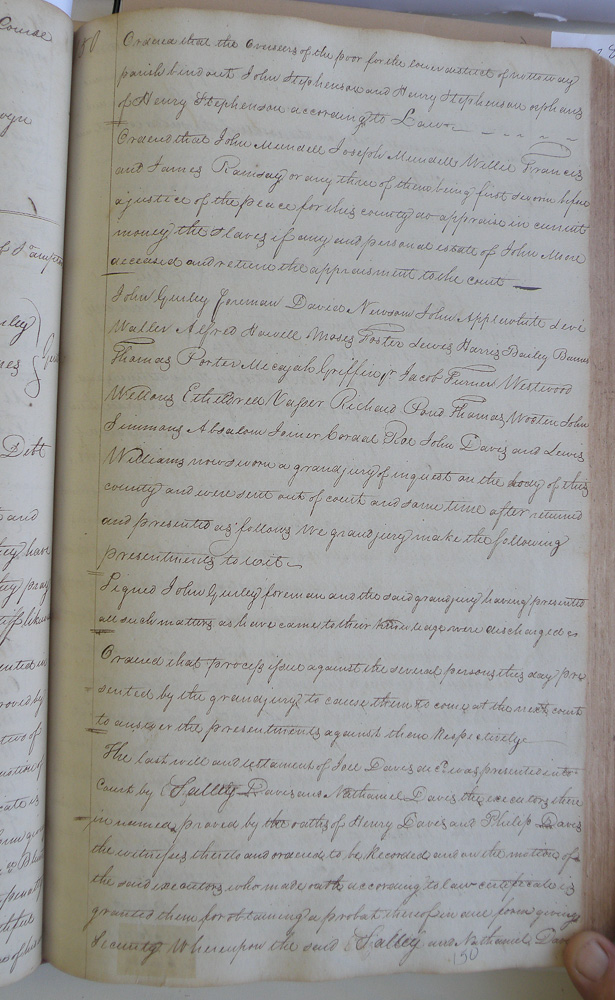 Course
Ordered that the Overseers of the poor for the lower district of nottoway
parish bind out John Stephenson and Henry Stephenson orphans
of Henry Stephenson according to Law
Ordered that John Mundell Joseph Mundell Willie Francis
and James Ramsay or any three of them being first sworn before
a justice of the peace for this county do appraise in current
money the slaves if any and personal estate of John More
deceased and return the appraisment to the court
John Gurley foreman David Newsom John Applewhite Levi
Waller Alfred Howell Moses Foster Lewis Harris Bailey Barnes
Thomas Porter Mecajah Griffin Jr Jacob Turner Westwood
Wellons Etheldred Vasser Richard Pond Thomas Wooten John
Simmons Absalom Joiner Cordal Roe John Davis and Lewis
Williams now sworn a grand jury of inquest on the body of this
county and were sent out of court and some time after returned
and presented as follows We grand jury make the following
presentments to wit
Signed John Gurley foreman and the said grand jury having presented
all such matters as have came to their knowledge were discharged
Ordered that process issue against the several persons this day pre
sented by the grand jury to cause them to come at the next court
to answer the presentments against them Respectively
The last will and testament of Joel Davis decd was presented into
Court by Salley Davis and Nathaniel Davis the executors there
in named proved by the oaths of Henry Davis and Philip Davis
the witnesses thereto and ordered to be Recorded and on the motion of
the said executors who made oath according to law certificate is
granted them for obtaining a probat thereof in due form giving
Security Whereupon the said Salley and Nathaniel Davis
150
Debt
and
they have
they pray